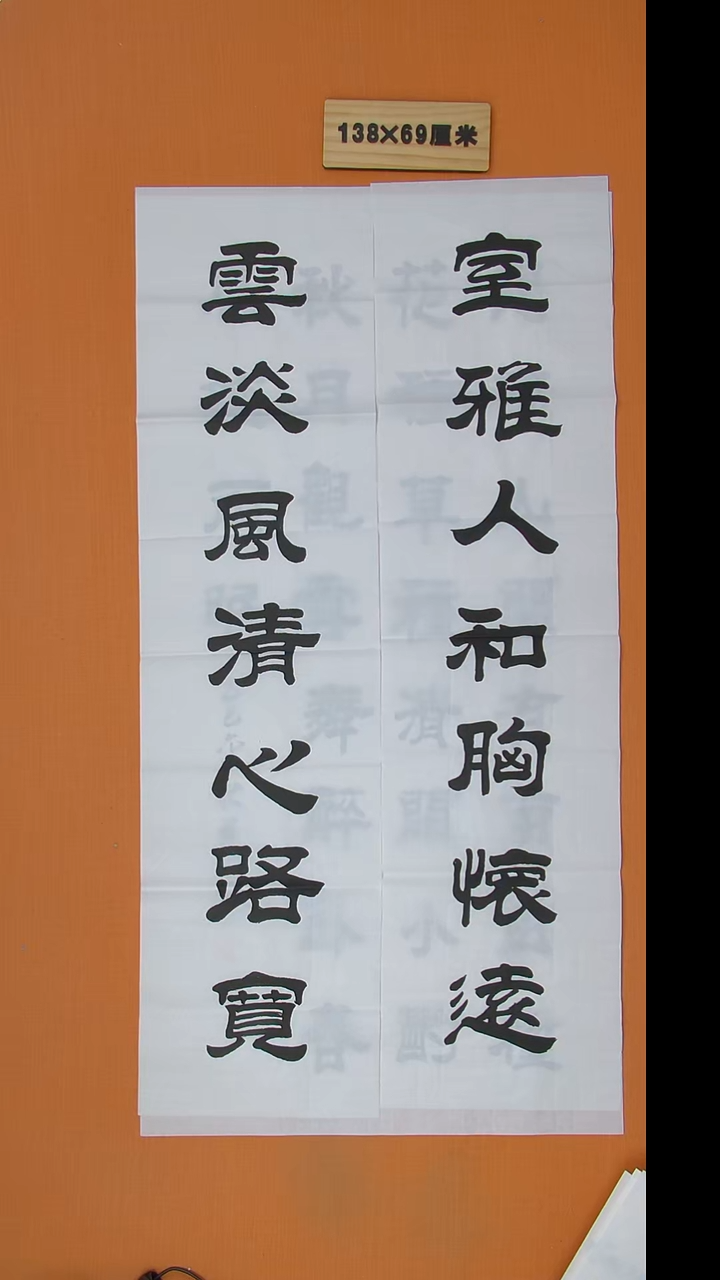 138×69厘米
室雅人和胸懷遠
雲淡風清心路寬